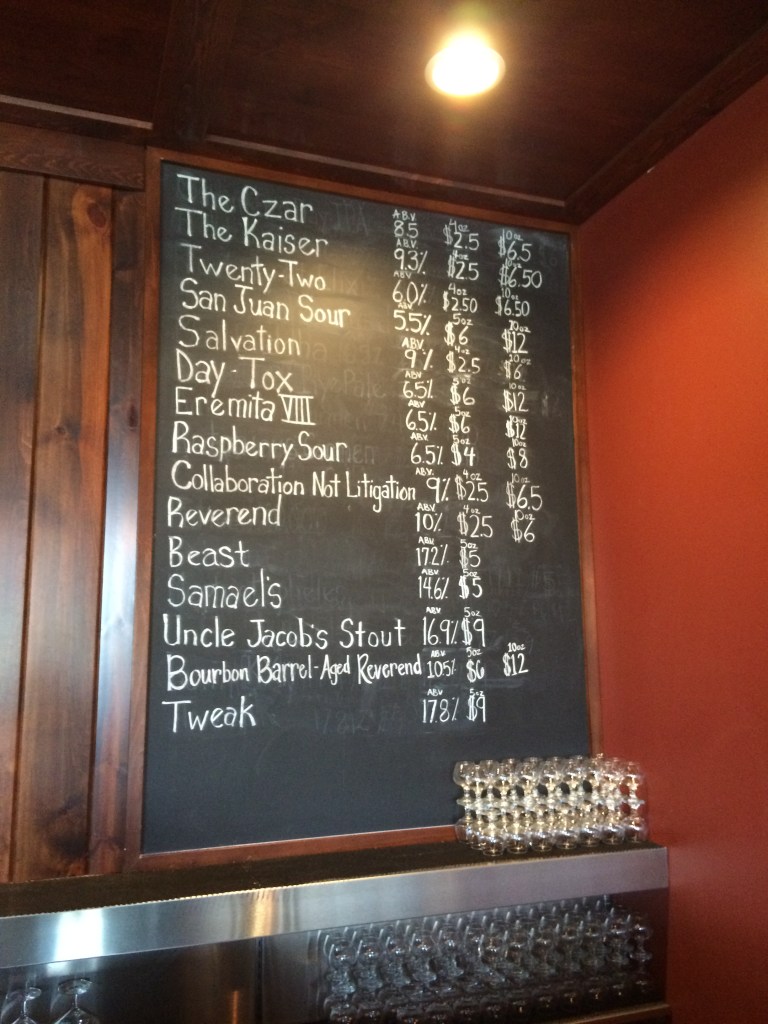 The Czar ABV 8.5 4oz $2.5 10oz $6.5
The Kaiser ABV 9.3% 4oz $2.5 10oz $6.50
Twenty-Two ABV 6.0% 4oz $2.50 10oz $6.50
San Juan Sour ABV 5.5% 5oz $6 10oz $12
Salvation ABV 9% 4oz $2.5 10oz $6
Day-Tox ABV 6.5% 5oz $6 10oz $12
Eremita VIII ABV 6.5% 5oz $6 10oz $12
Raspberry Sour ABV 6.5% 5oz $4 10oz $8
Collaboration Not Litigation ABV 9% 4oz $2.5 10oz $6.5
Reverend ABV 10% 4oz $2.5 10oz $6
Beast ABV 17.2% 5oz $5
Samael's ABV 14.6% 5oz $5
Uncle Jacob's Stout ABV 16.9% 5oz $9
Bourbon Barrel-Aged Reverend ABV 10.5% 5oz $6 10oz $12
Tweak ABV 17.8% 5oz $9